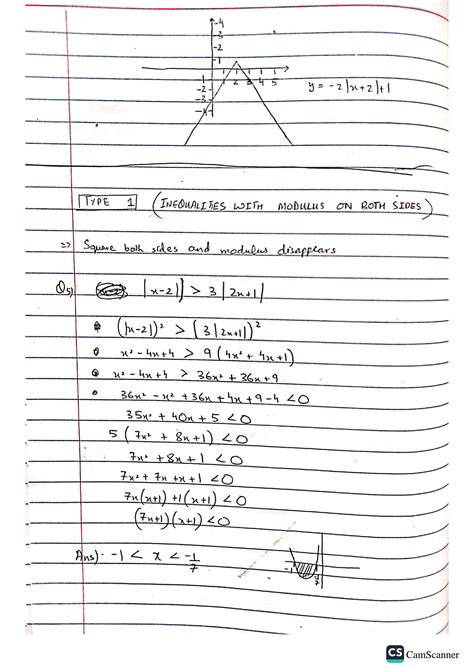 -4
-3
-2
-1
1 2 3 4 5
-2
-3
-4
y = -2|x+2|+1
TYPE 1 (INEQUALITIES WITH MODULUS ON BOTH SIDES)
=> Square both sides and modulus disappears
Q5) |x-2| > 3|2x+1|
(|x-2|)² > (3|2x+1|)²
x² - 4x+4 > 9(4x² + 4x+1)
x² - 4x+4 > 36x² + 36x+9
36x² - x² + 36x + 4x + 9 - 4 <0
35x² + 40x + 5 <0
5(7x² + 8x+1) <0
7x² + 8x + 1 <0
7x² + 7x + x + 1 <0
7x(x+1) +1(x+1) <0
(7x+1)(x+1) <0
Ans): -1 < x < -1/7
-1 -1/7
CS CamScanner